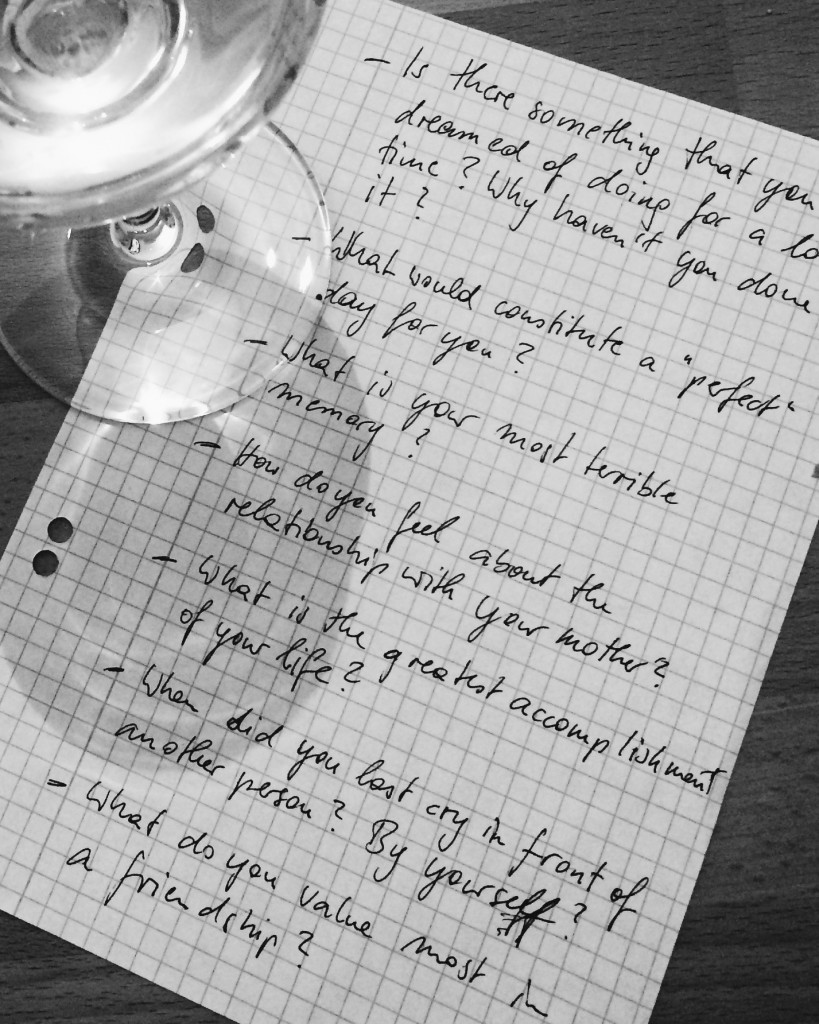 - Is there something that you
dreamed of doing for a lo
time? Why haven't you done
it?
- What would constitute a "perfect"
day for you?
- What is your most terrible
memory?
- How do you feel about the
relationship with your mother?
- What is the greatest accomplishment
of your life?
- When did you last cry in front of
another person? By yourself?
- What do you value most in
a friendship?